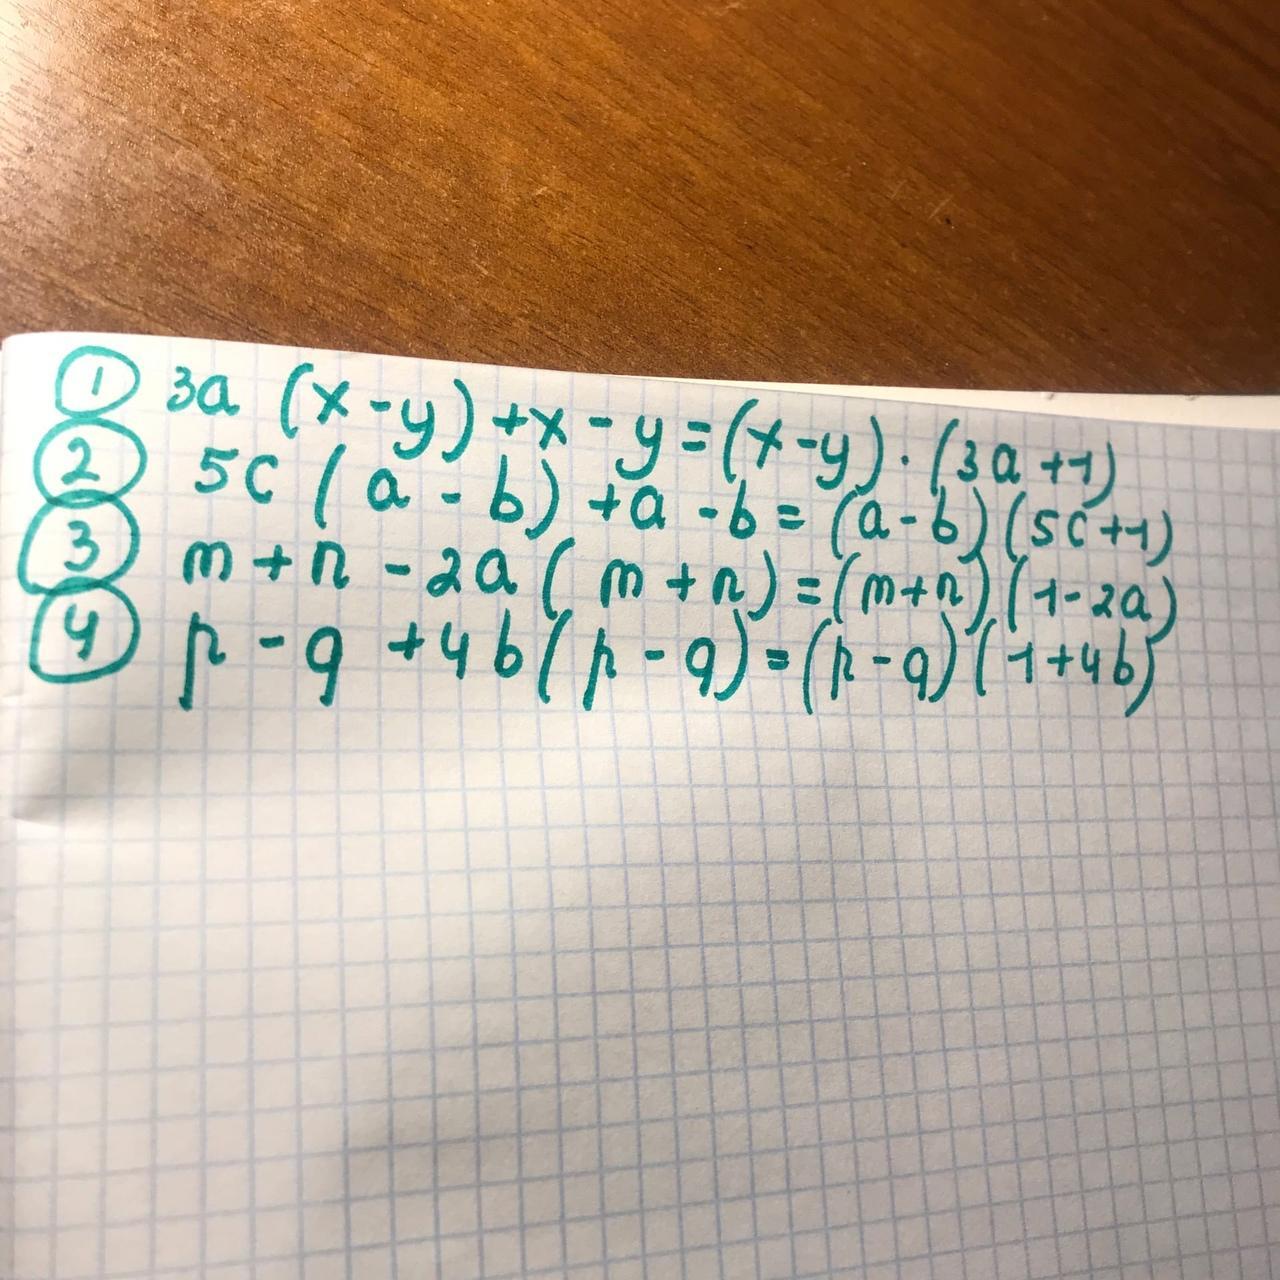 ① 3a (x - y) + x - y = (x - y) · (3a + 1)
② 5c (a - b) + a - b = (a - b) (5c + 1)
③ m + n - 2a (m + n) = (m + n) (1 - 2a)
④ p - q + 4b (p - q) = (p - q) (1 + 4b)